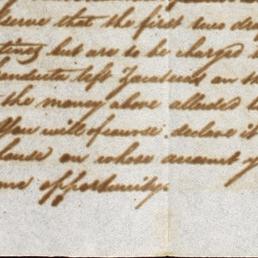 serve that the first two
but are to be charged
Conducta left Zacatecas on
the money above alluded
You will of course declare it
on whose account
opportunity.